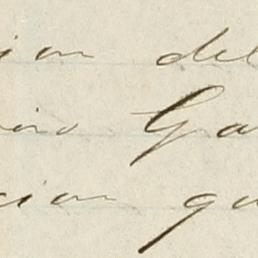 ion del
rio Ga
cion qu